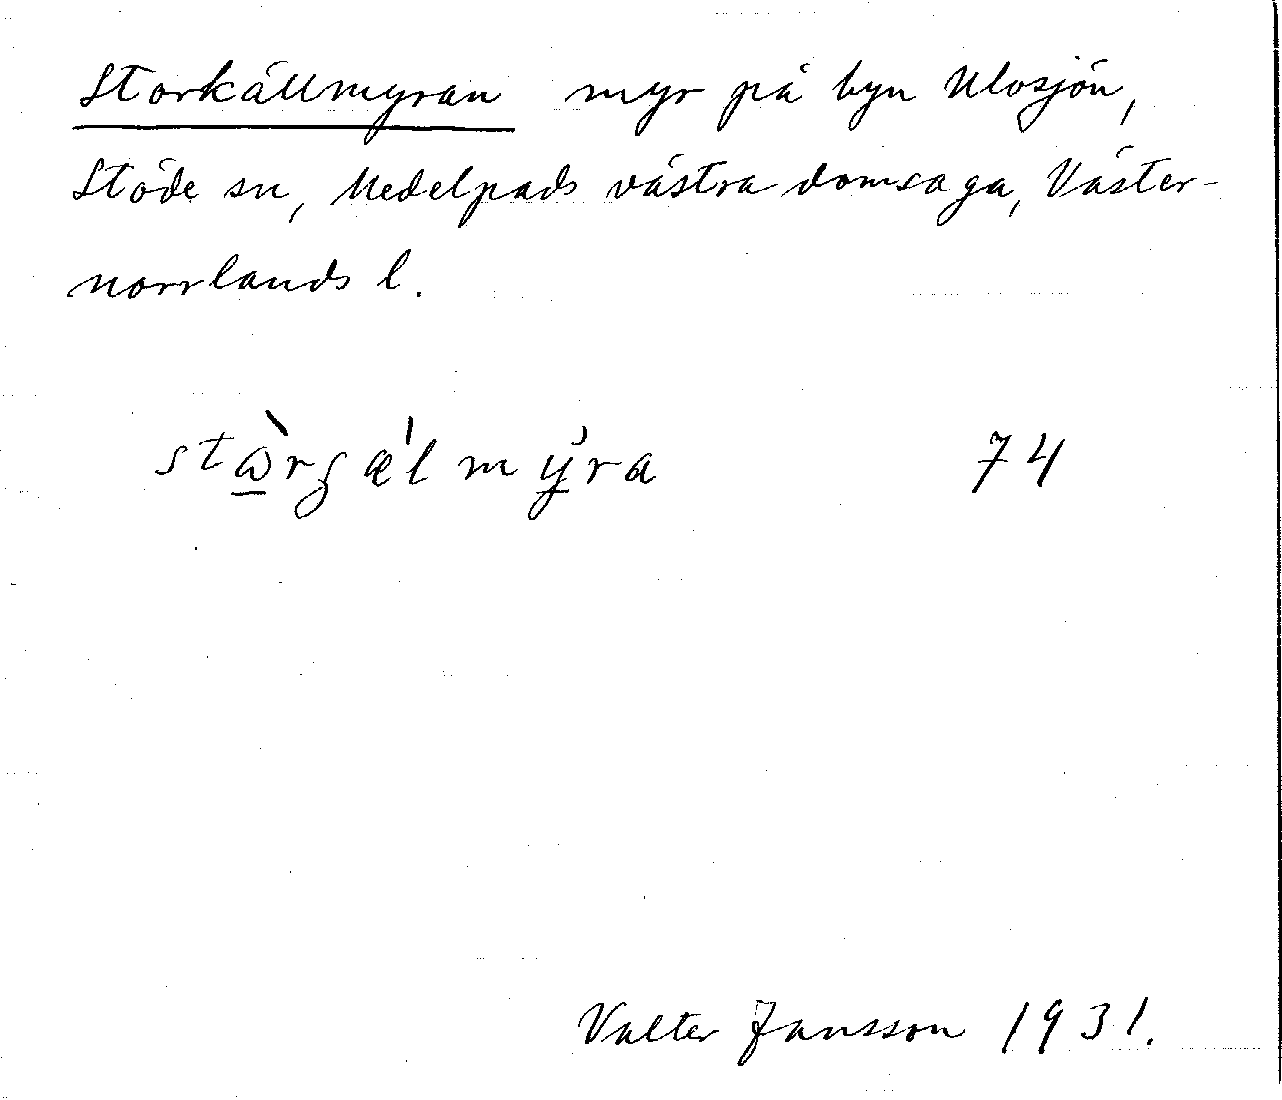 Storkällmyran myr på byn Ulosjön,
Stöde sn, Medelpads västra domsaga, Väster-
norrlands l.
74
Valter Jansson 1931.